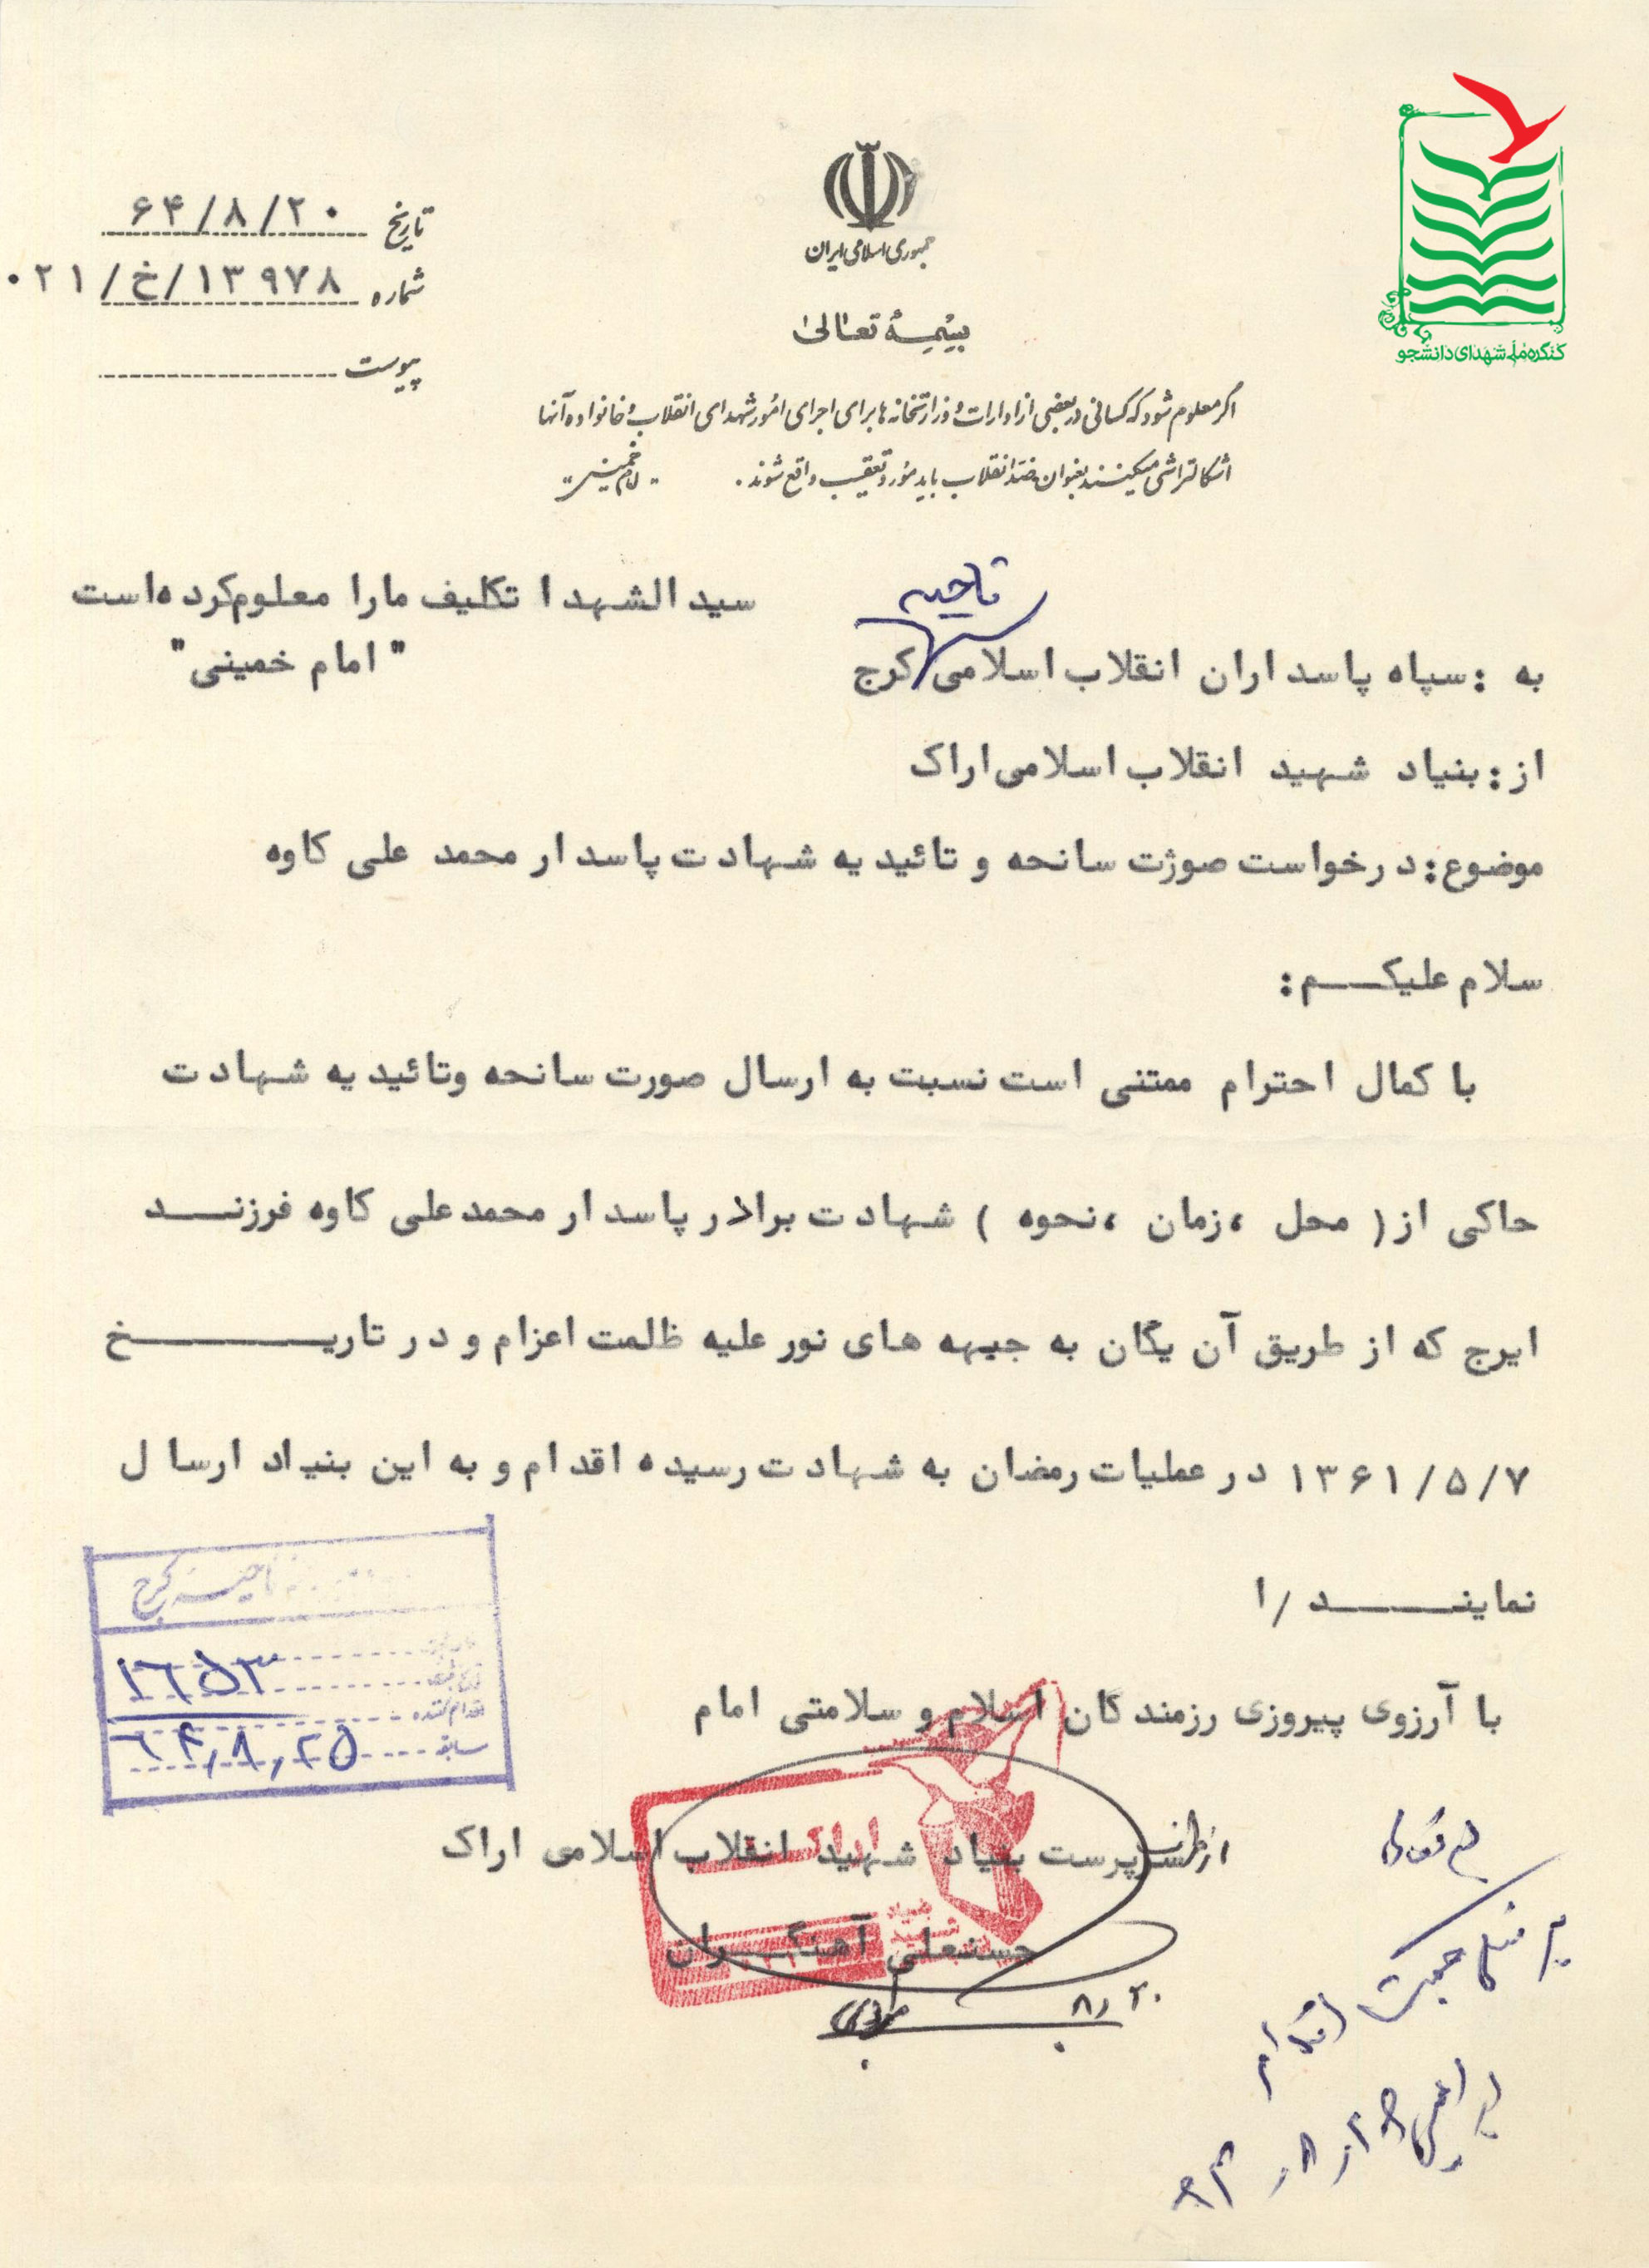 کنگره ملی شهدای دانشجو
جمهوری اسلامی ایران
تاریخ ۶۴/۸/۲۰
شماره ۱۳۹۷۸/خ/۰۲۱
پیوست
بسمه تعالی
اگر معلوم شود که کسانی در بعضی از ادارات و وزارتخانه ها برای اجرای امور شهدای انقلاب و خانواده آنها
اشکالتراشی میکنند بعنوان ضد انقلاب باید مورد تعقیب واقع شوند. "امام خمینی"
سید الشهدا تکلیف مارا معلوم کرده است
"امام خمینی"
ناحیه
به : سپاه پاسداران انقلاب اسلامی کرج
از : بنیاد شهید انقلاب اسلامی اراک
موضوع : درخواست صوژت سانحه و تائیدیه شهادت پاسدار محمد علی کاوه
سلام علیکـــم :
با کمال احترام ممتنی است نسبت به ارسال صورت سانحه وتائیدیه شهادت
حاکی از ( محل ، زمان ، نحوه ) شهادت برادر پاسدار محمدعلی کاوه فرزنـــد
ایرج که از طریق آن یگان به جبهه های نور علیه ظلمت اعزام و در تاریـــــــخ
۱۳۶۱/۵/۷ در عملیات رمضان به شهادت رسیده اقدام و به این بنیاد ارسال
نماینـــــد /ا
ناحیه کرج
۱۶۵۳
اقدام کننده
سابقه ۶۴٫۸٫۲۵
با آرزوی پیروزی رزمندگان اسلام و سلامتی امام
از طرف سرپرست بنیاد شهید انقلاب اسلامی اراک
اراک
حسنعلی آهنگـــران
۸٫۲۰
پرسنلی جهت اقدام
۶۴٫۸٫۲۶